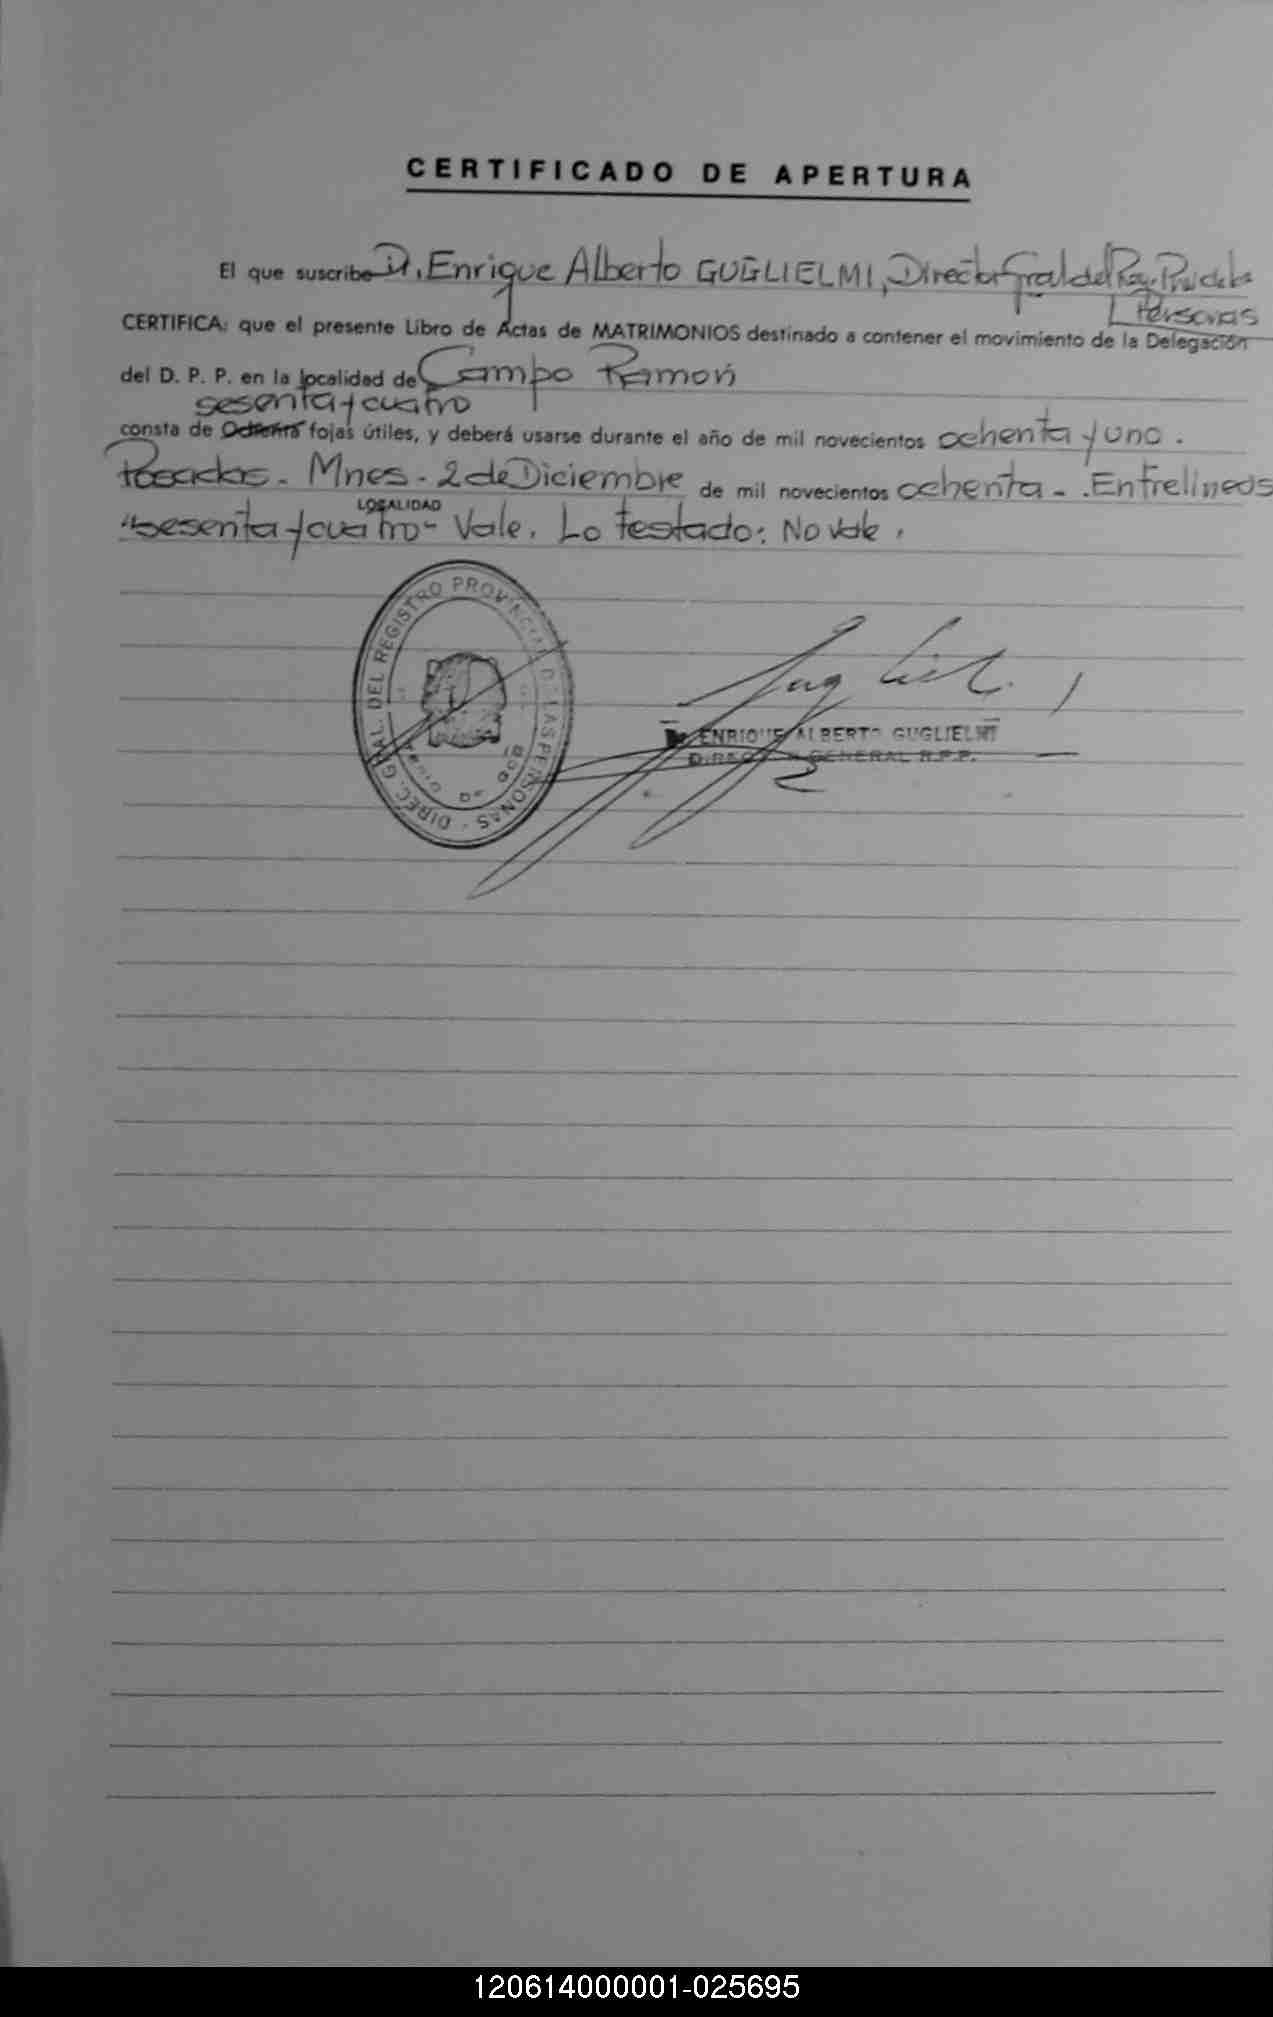 CERTIFICADO DE APERTURA
El que suscribe D. Enrique Alberto GUGLIELMI, Director Gral del Reg. Prov de las
Personas
CERTIFICA: que el presente Libro de Actas de MATRIMONIOS destinado a contener el movimiento de la Delegación
del D. P. P. en la localidad de Campo Ramón
sesenta y cuatro
consta de Ochenta fojas útiles, y deberá usarse durante el año de mil novecientos ochenta y uno.
Posadas - Mnes - 2 de Diciembre de mil novecientos ochenta - . Entrelineas
LOCALIDAD
"sesenta y cuatro" Vale. Lo testado: No vale.
DIREC. GRAL. DEL REGISTRO PROVINCIAL DE LAS PERSONAS
ENRIQUE ALBERTO GUGLIELMI
DIRECTOR GENERAL R.P.P.
120614000001-025695